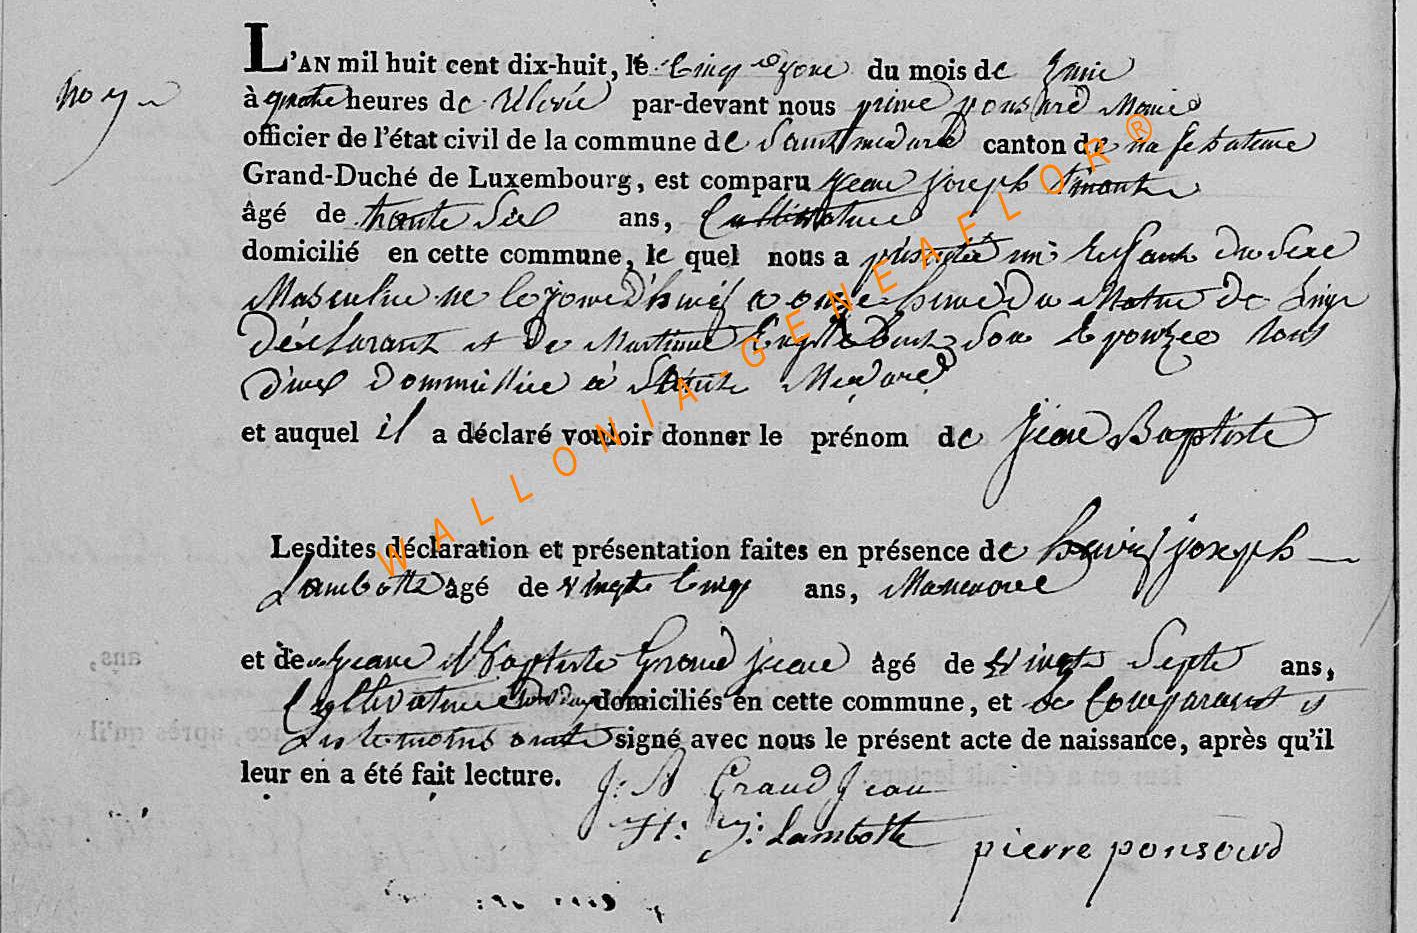 L'AN mil huit cent dix-huit, le Cinq du mois de
à quatre heures de Relevée par-devant nous ponsard Maire
officier de l'état civil de la commune de Saint medard canton de
Grand-Duché de Luxembourg, est comparu jean joseph
âgé de trante Six ans, Cultivateur
domicilié en cette commune, le quel nous a présentée un Enfant du Sexe
Masculin ne le jourd'huis a onze heure du Matin De Luy
déclarant et De Martinne Son Epouzee tous
deux dommicilie a Sainte Medard
et auquel il a déclaré vouloir donner le prénom de jean Baptiste
Lesdites déclaration et présentation faites en présence de joseph
Lambotte âgé de vingt Cinq ans,
et de jean Baptiste Grand jean âgé de vingt Septe ans,
Cultivateur domiciliés en cette commune, et Comparant et
Les temoins onte signé avec nous le présent acte de naissance, après qu'il
leur en a été fait lecture.
J: B Grand Jean
H: j: Lambotte
pierre ponsard
WALLONIA-GENEAFLOR®